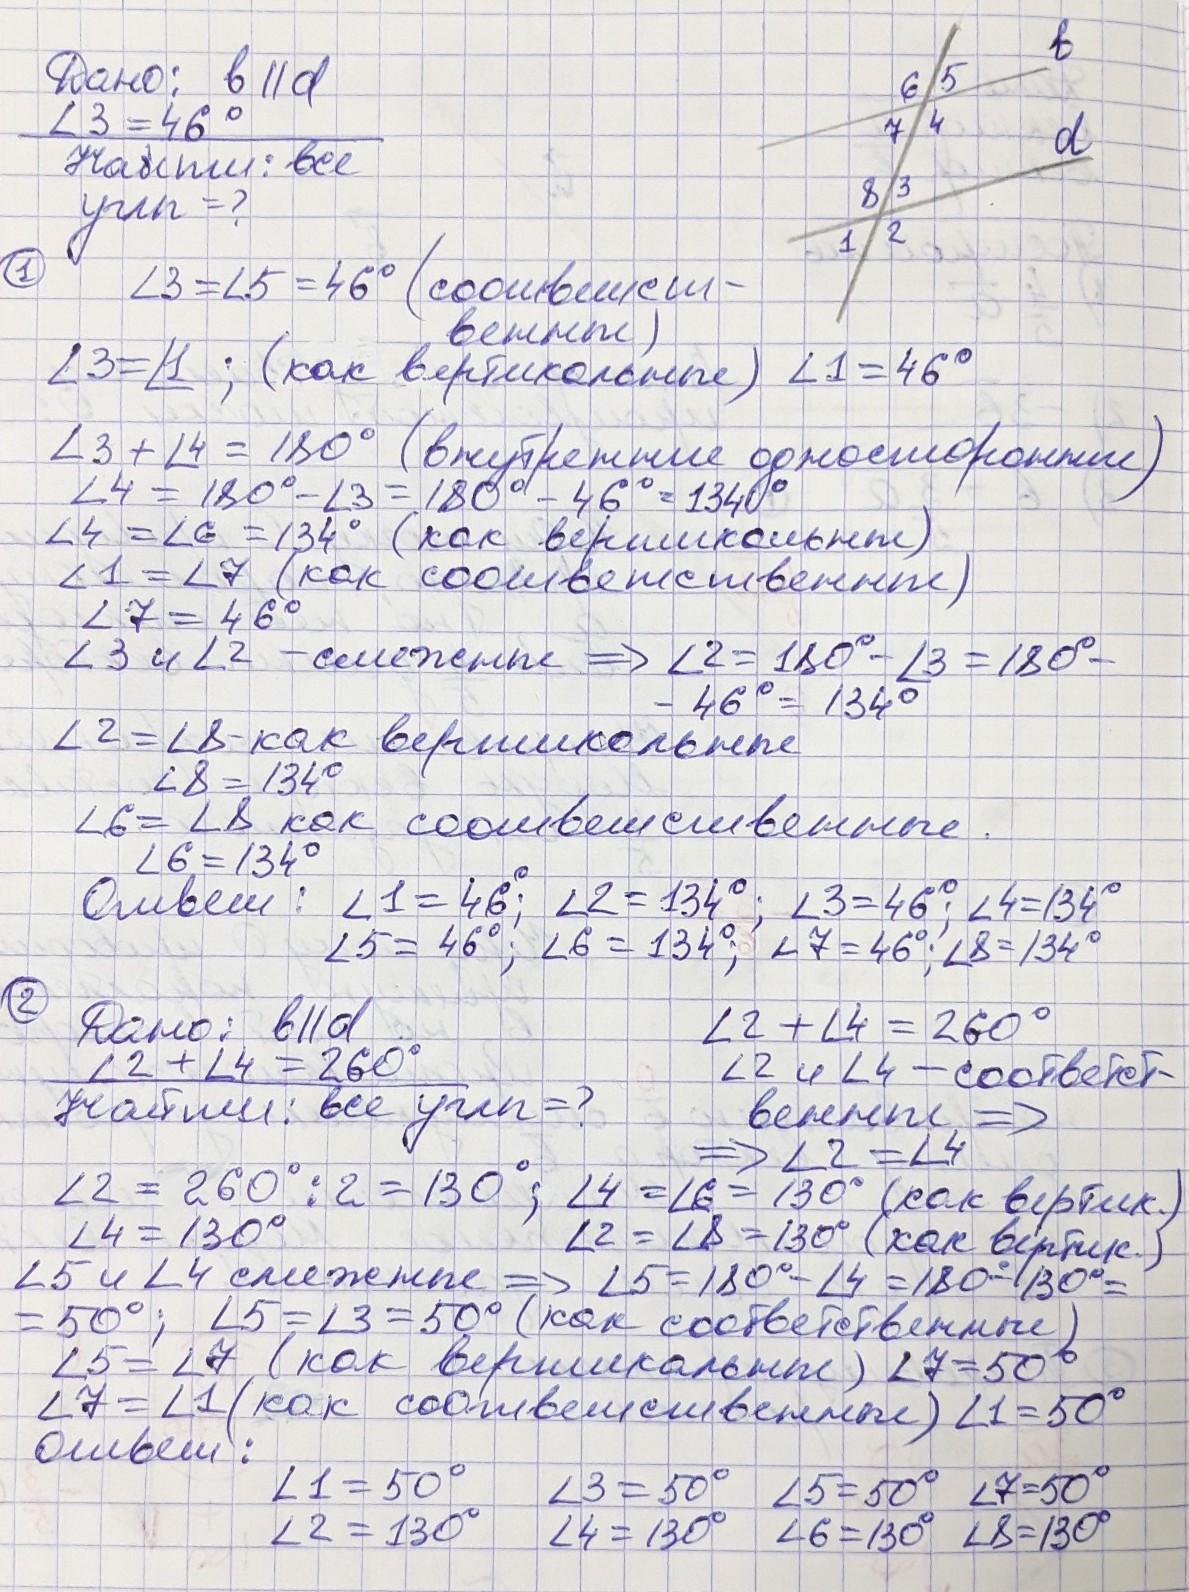 Дано: b || d
∠3 = 46°
Найти: все
углы = ?
b
d
6 5
7 4
8 3
1 2
① ∠3 = ∠5 = 46° (соответст-
венные)
∠3 = ∠1 ; (как вертикальные) ∠1 = 46°
∠3 + ∠4 = 180° (внутренние односторонние)
∠4 = 180° - ∠3 = 180° - 46° = 134°
∠4 = ∠6 = 134° (как вертикальные)
∠1 = ∠7 (как соответственные)
∠7 = 46°
∠3 и ∠2 - смежные => ∠2 = 180° - ∠3 = 180° -
- 46° = 134°
∠2 = ∠8 - как вертикальные
∠8 = 134°
∠6 = ∠8 как соответственные.
∠6 = 134°
Ответ: ∠1 = 46°; ∠2 = 134°; ∠3 = 46°; ∠4 = 134°
∠5 = 46°; ∠6 = 134°; ∠7 = 46°; ∠8 = 134°
② Дано: b || d
∠2 + ∠4 = 260°
Найти: все углы = ?
∠2 + ∠4 = 260°
∠2 и ∠4 - соответст-
венные =>
=> ∠2 = ∠4
∠2 = 260° : 2 = 130° ; ∠4 = ∠6 = 130° (как вертик.)
∠4 = 130° ∠2 = ∠8 = 130° (как вертик.)
∠5 и ∠4 смежные => ∠5 = 180° - ∠4 = 180° - 130° =
= 50°; ∠5 = ∠3 = 50° (как соответственные)
∠5 = ∠7 (как вертикальные) ∠7 = 50°
∠7 = ∠1 (как соответственные) ∠1 = 50°
Ответ:
∠1 = 50° ∠3 = 50° ∠5 = 50° ∠7 = 50°
∠2 = 130° ∠4 = 130° ∠6 = 130° ∠8 = 130°